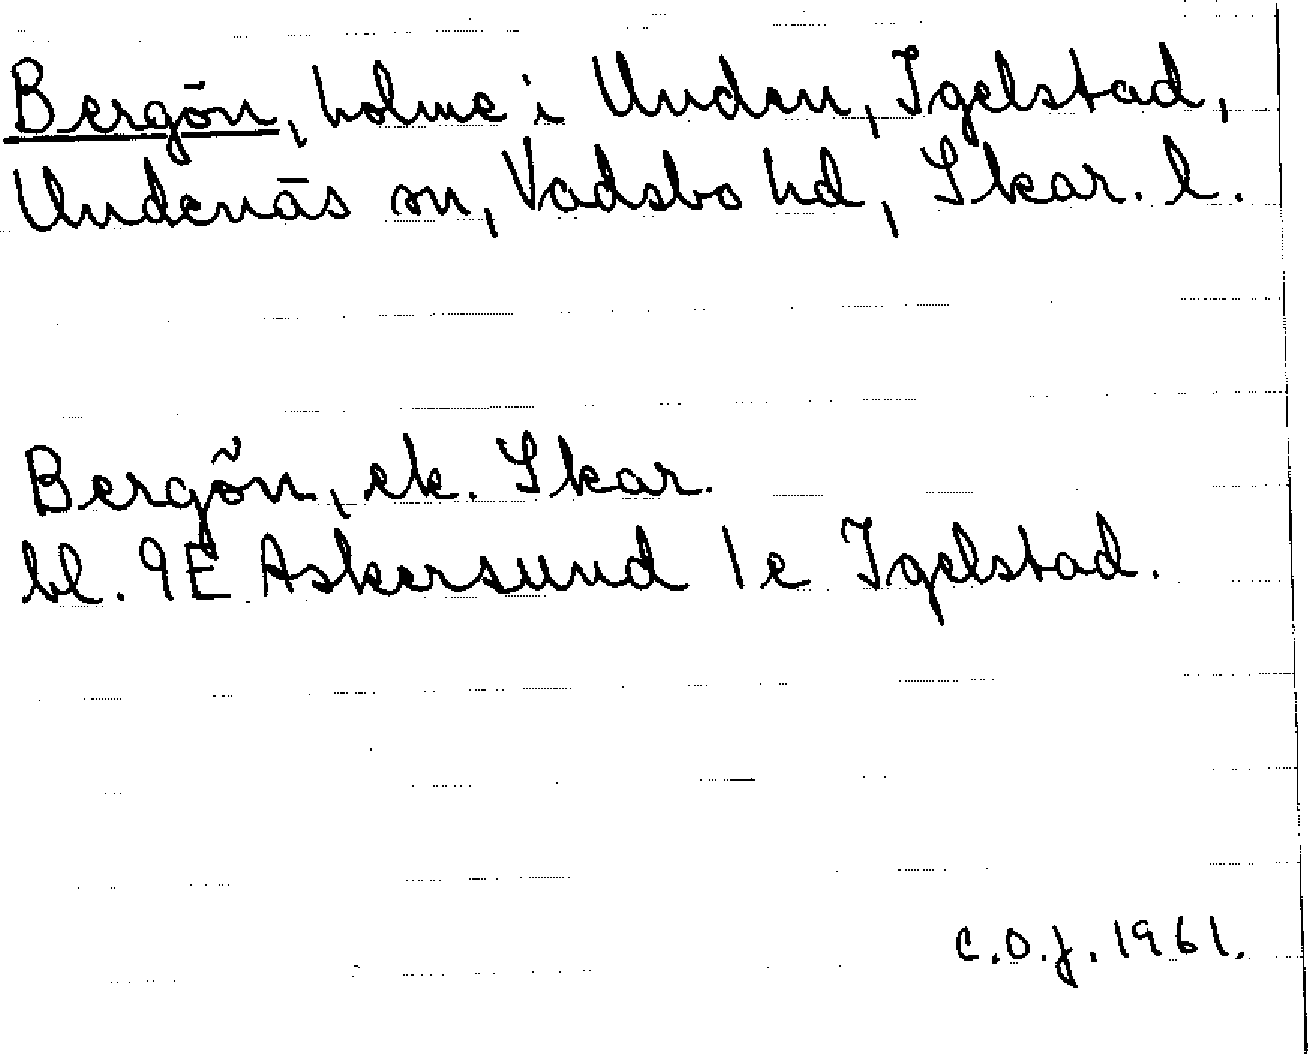 Bergön, holme i Unden, Igelstad,
Undenäs sn, Vadsbo hd, Skar. l.
Bergön, ek. Skar.
bl. 9E Askersund 1e Igelstad.
C.O.J. 1961.